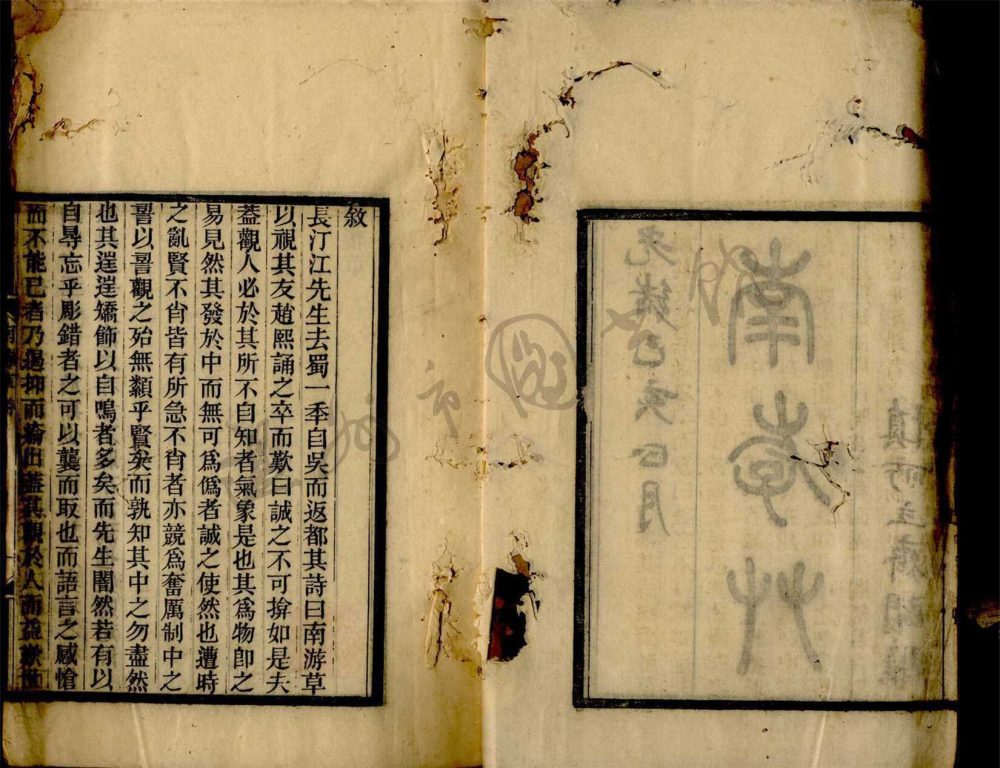 南游艸
光緒己亥正月
敘
長汀江先生去蜀一秊自吳而返都其詩曰南游草
以視其友趙熙誦之卒而歎曰誠之不可揜如是夫
蓋觀人必於其所不自知者氣象是也其爲物卽之
易見然其發於中而無可爲僞者誠之使然也遭時
之亂賢不肖皆有所急不肖者亦競爲奮厲制中之
善以善觀之殆無纇乎賢矣而孰知其中之勿盡然
也其逞逞矯飾以自鳴者多矣而先生闇然若有以
自尋忘乎彫錯者之可以襲而取也而語言之感愴
而不能已者乃遏抑而出蓋其觀於人而益歎